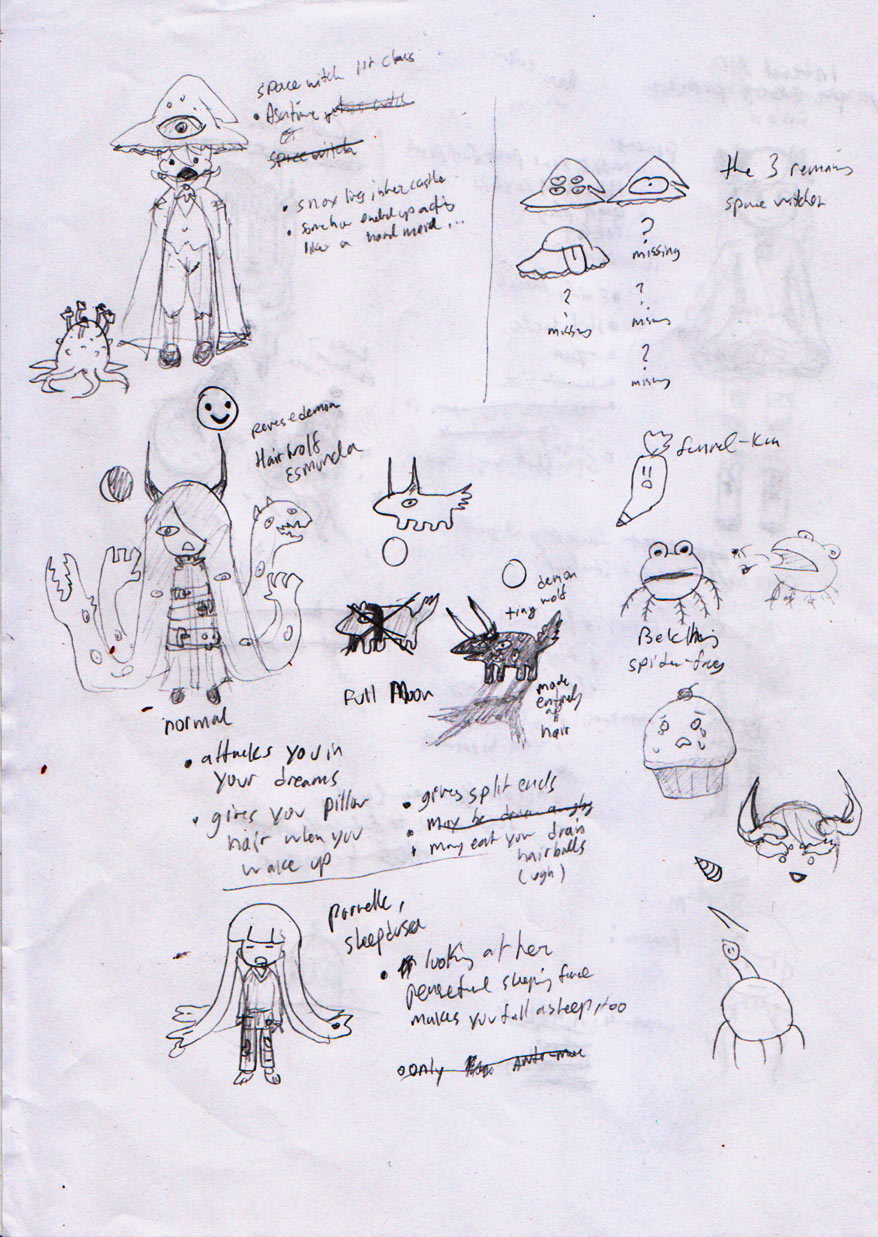 space witch 1st class
• Asertine
or
space witch
• snox lives in her castle
• somehow ended up acting
like a hand maid...
the 3 remains
space witches
?
missing
?
missing
?
missing
?
missing
Reverse demon
Hairwolf
Esmurela
funnel-kun
demon
wolf
tiny
Full Moon
made
entirely
of
hair
Belching
spider-frog
normal
• attacks you in
your dreams
• gives you pillow
hair when you
wake up
• gives split ends
• may be
• may eat your drain
hairballs
(ugh)
sleepdusa
• looking at her
peaceful sleeping face
makes you fall asleep, too
• only